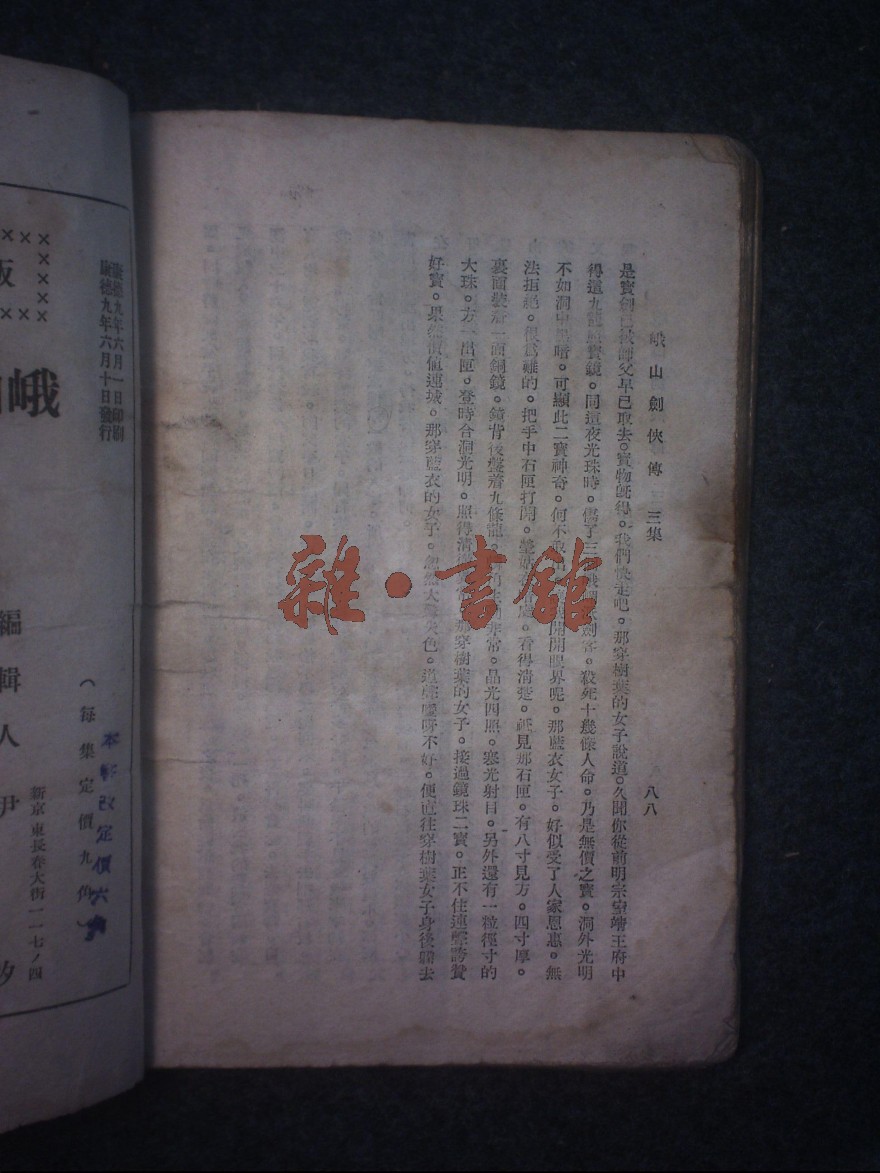 峨山劍俠傳 三集 八八
是寶劍已被師父早已取去。寶物既得。我們快走吧。那穿樹葉的女子說道。久聞你從前明宗室靖王府中
得這九龍 寶鏡。同這夜光珠時。傷了三 劍客。殺死十幾條人命。乃是無價之寶。洞外光明
不如洞中黑暗。可顯此二寶神奇。何不 開開眼界呢。那藍衣女子。好似受了人家恩惠。無
法拒絕。很爲難的。把手中石匣打開。 看得清楚。祇見那石匣。有八寸見方。四寸厚。
裏面裝着一面銅鏡。鏡背後盤着九條龍。 非常。晶光四照。寒光射目。另外還有一粒徑寸的
大珠。方一出匣。登時合洞光明。照得清 那穿樹葉的女子。接過鏡珠二寶。正不住連聲誇贊
好寶。果然價值連城。那穿藍衣的女子。忽然大驚失色。道聲噯呀不好。便直往穿樹葉女子身後閃去
雜·書館
康德九年六月一日印刷
康德九年六月十日發行
版
峨
編輯人 尹 汐
新京東長春大街一一七ノ四
(每集定價九角)
本 改定價六角